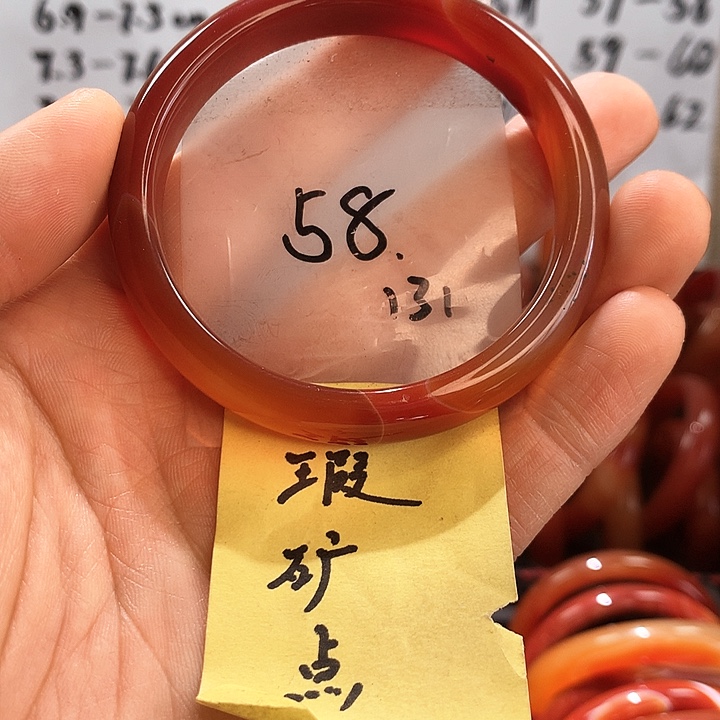 6.9-7.3cm
57-58
7.3-7.6
59-60
62
58.
131
瑕
矿
点